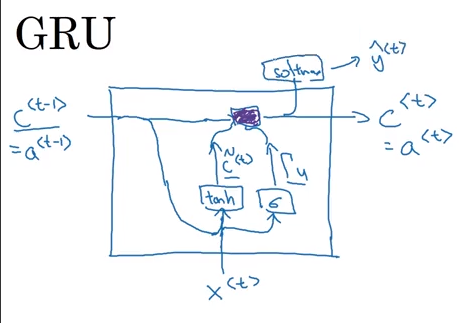 GRU
softmax → ŷ<t>
c<t-1>
= a<t-1>
c<t>
= a<t>
c̃<t>
Γu
tanh
σ
x<t>